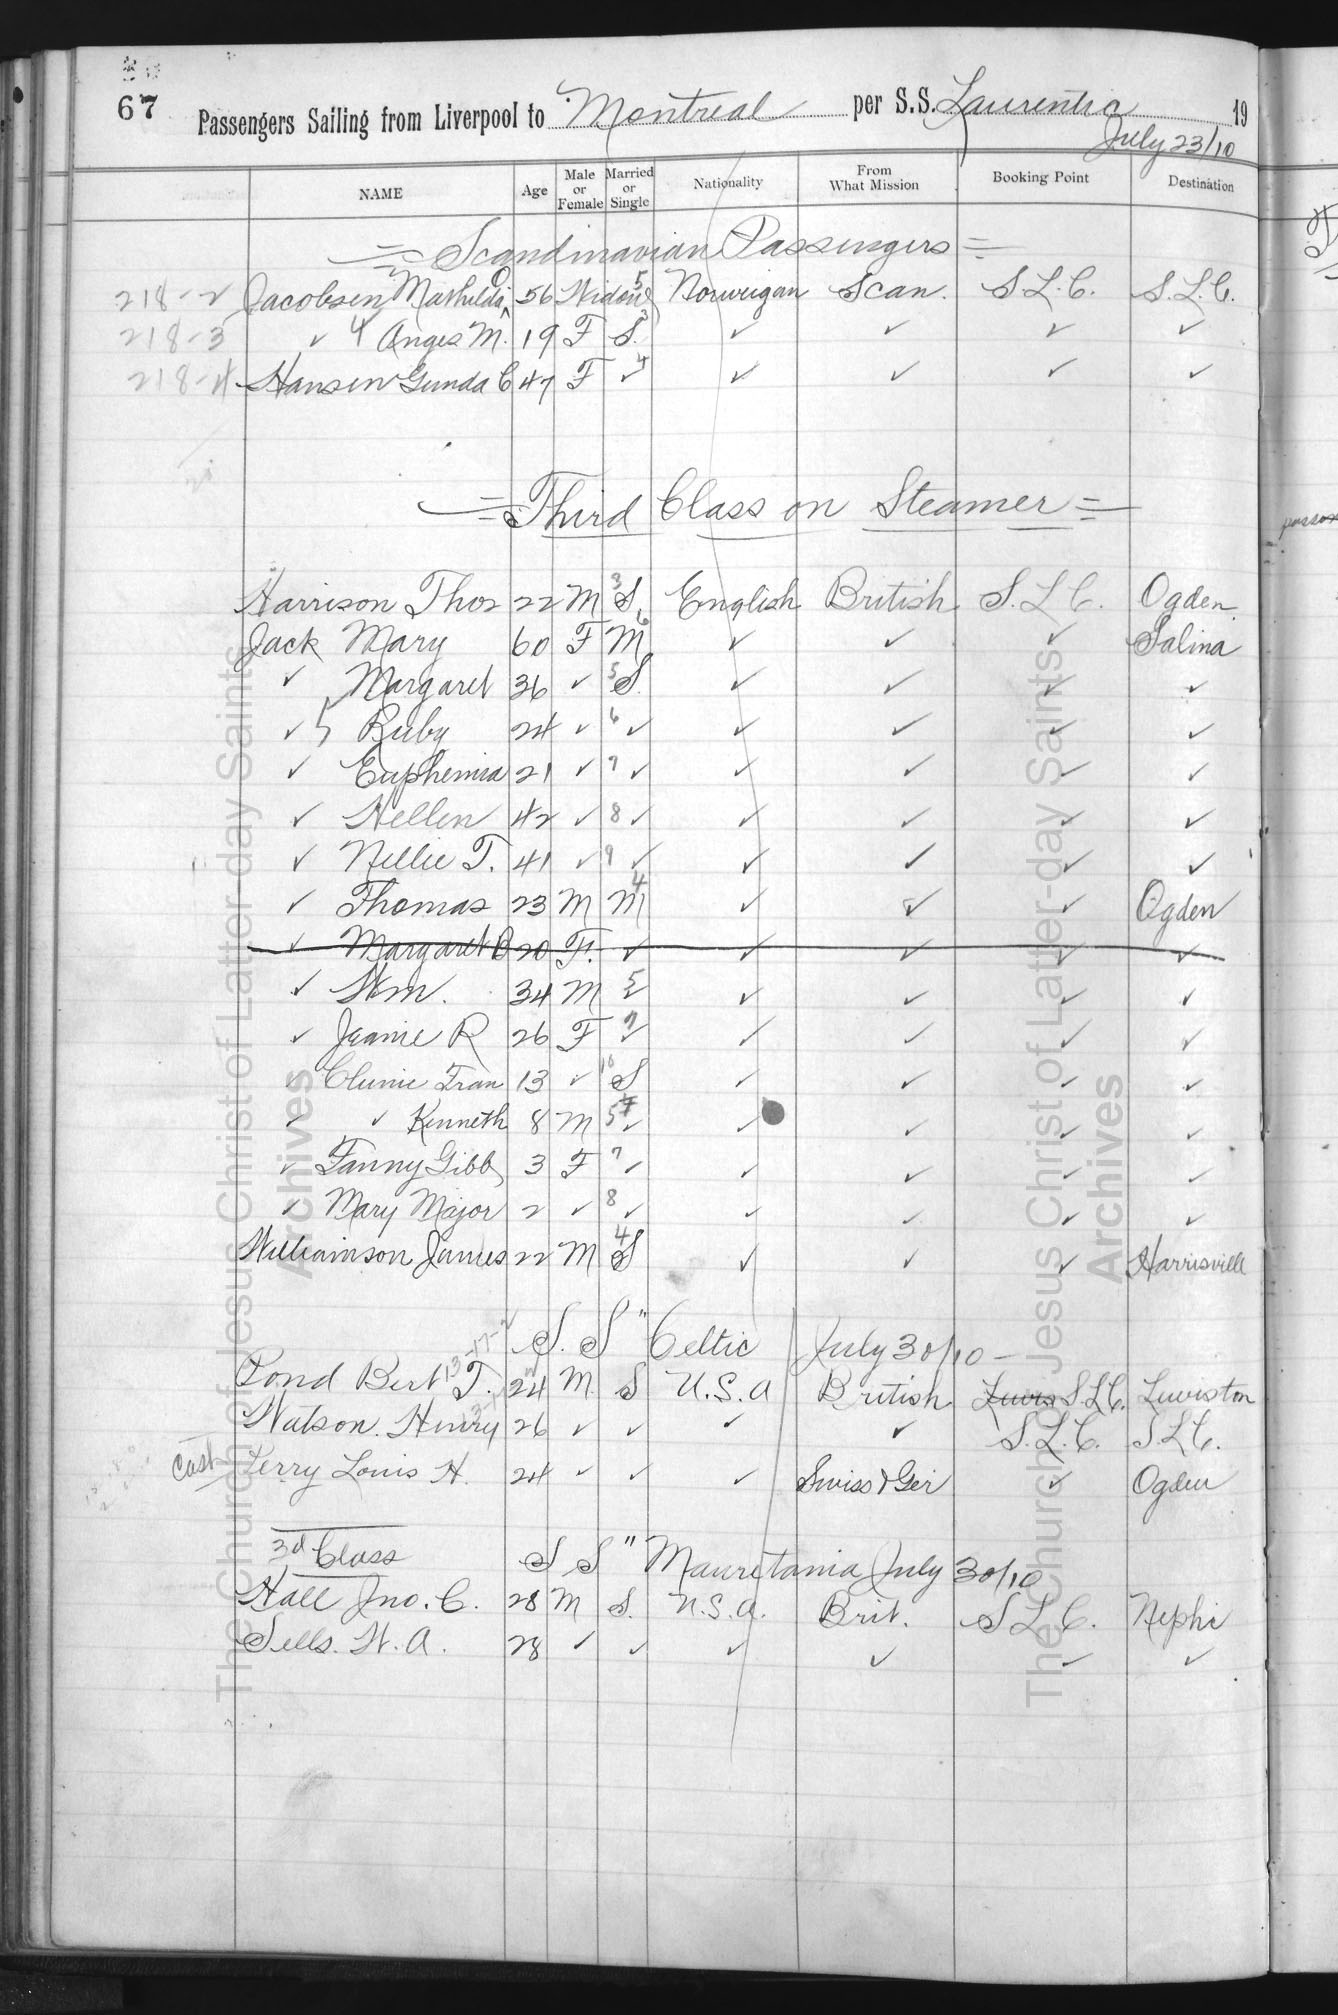 67 Passengers Sailing from Liverpool to Montreal per S.S. Laurentic 19
July 23/10
NAME Age Male or Female Married or Single Nationality From What Mission Booking Point Destination
= Scandinavian Passengers =
218-2 Jacobsen Mathilda O 56 Widow 5 Norweigan Scan. S.L.C. S.L.C.
218-3 ✓ 4 Anges M. 19 F S. 3 ✓ ✓ ✓ ✓
218-4 Hansen Gunda C 47 F ✓ 4 ✓ ✓ ✓ ✓
= Third Class on Steamer =
Harrison Thos 22 M 3 S. English British S.L.C. Ogden
Jack Mary 60 F M 6 ✓ ✓ ✓ Salina
✓ Margaret 36 ✓ 5 S. ✓ ✓ ✓ ✓
✓ 5 Ruby 24 ✓ 6 ✓ ✓ ✓ ✓ ✓
✓ Euphemia 21 ✓ 7 ✓ ✓ ✓ ✓ ✓
✓ Hellen 42 ✓ 8 ✓ ✓ ✓ ✓ ✓
✓ Nellie T. 41 ✓ 9 ✓ ✓ ✓ ✓ ✓
✓ Thomas 23 M M 4 ✓ ✓ ✓ Ogden
✓ Margaret B 20 F. ✓ ✓ ✓ ✓ ✓
✓ Wm. 34 M 5 ✓ ✓ ✓ ✓ ✓
✓ Jeanie R 26 F 7 ✓ ✓ ✓ ✓ ✓
✓ Clunie Fran 13 ✓ 10 S ✓ ✓ ✓ ✓
✓ ✓ Kenneth 8 M 5 ✓ ✓ ✓ ✓ ✓
✓ Fanny Gibb 3 F 7 ✓ ✓ ✓ ✓ ✓
✓ Mary Major 2 ✓ 8 ✓ ✓ ✓ ✓ ✓
Williamson James 22 M 4 S ✓ ✓ ✓ Harrisville
S. S "Celtic July 30/10 -
Pond Bert T. 13-17-2 24 M. S U.S.A British Lewis S.L.C. Lewiston
Watson. Henry 26 ✓ ✓ ✓ ✓ S.L.C. S.L.C.
Cash Perry Louis H. 24 ✓ ✓ ✓ Swiss & Ger ✓ Ogden
3d Class S S "Mauretania July 30/10
Hall Jno. C. 28 M S. U.S.A. Brit. S L C. Nephi
Sells. W. A. 28 ✓ ✓ ✓ ✓ ✓ ✓
The Church of Jesus Christ of Latter-day Saints Archives
The Church of Jesus Christ of Latter-day Saints Archives